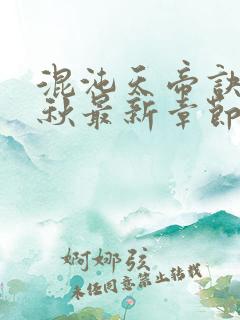 混沌天帝诀
秋最新章节
婀娜弦
未经同意禁止转载